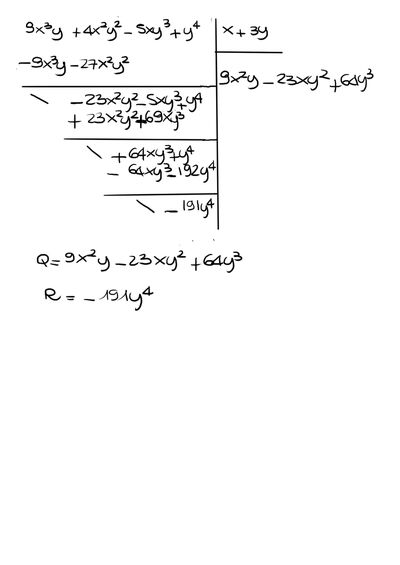 9x³y + 4x²y² - 5xy³ + y⁴ | x + 3y
-9x³y - 27x²y² | 9x²y - 23xy² + 64y³
\ - 23x²y² - 5xy³ + y⁴
+ 23x²y² + 69xy³
\ + 64xy³ + y⁴
- 64xy³ - 192y⁴
\ - 191y⁴
Q = 9x²y - 23xy² + 64y³
R = - 191y⁴